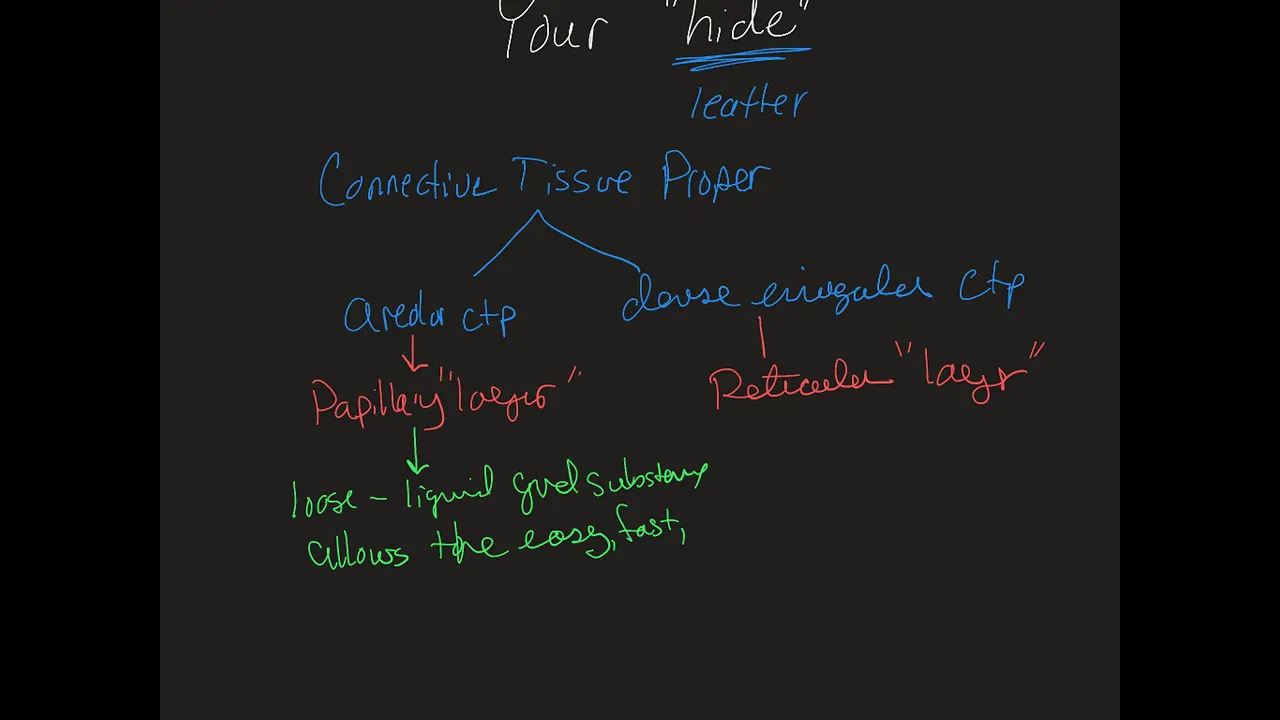 Your "hide"
leather
Connective Tissue Proper
areolar ctp
dense irregular ctp
Papillary "layer"
Reticular "layer"
loose - liquid grnd substance
allows the easy, fast,